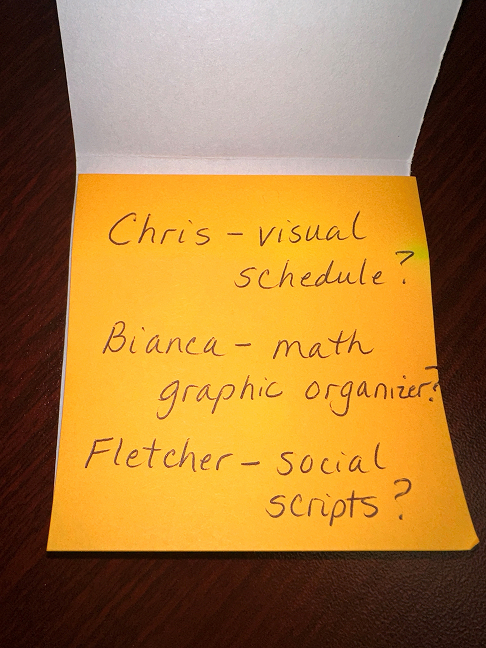 Chris – visual
schedule?
Bianca – math
graphic organizer?
Fletcher – social
scripts?